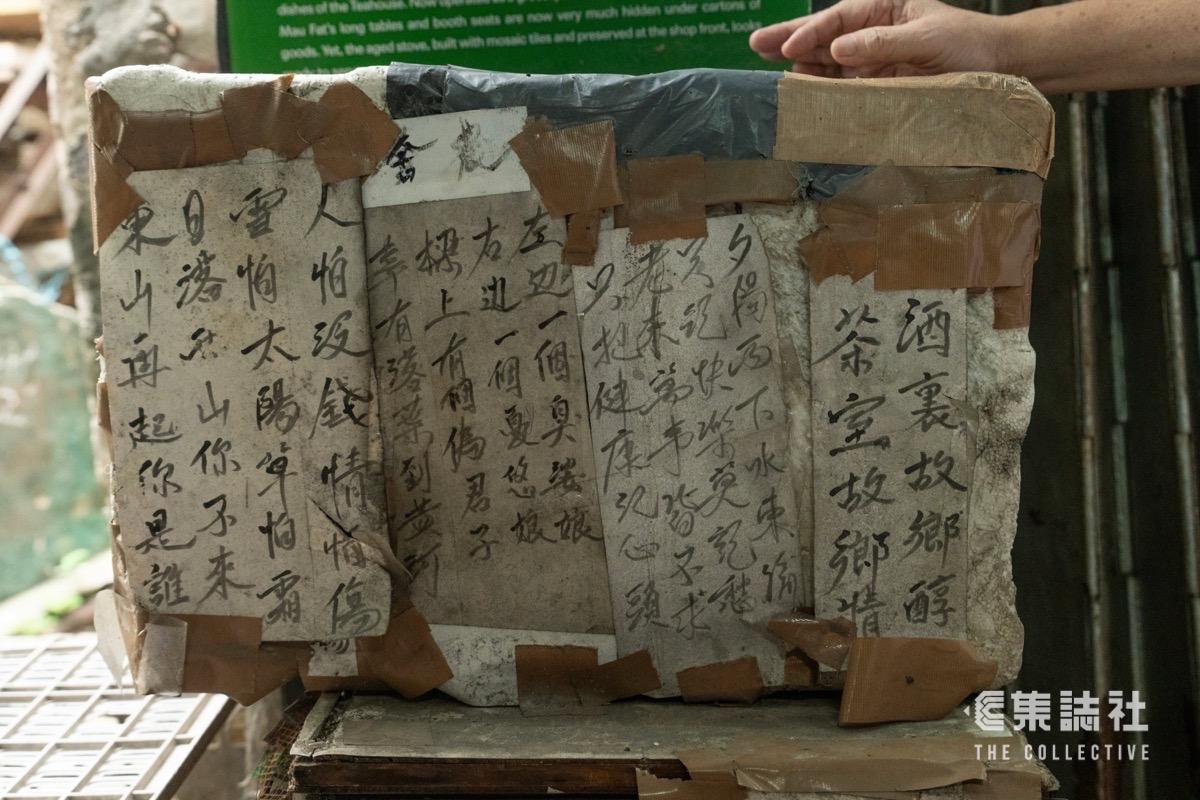 dishes of the Teahouse. Now operated as a
Mau Fat's long tables and booth seats are now very much hidden under cartons of
goods. Yet, the aged stove, built with mosaic tiles and preserved at the shop front, looks
酒裏故鄉醇
茶室故鄉情
夕陽西下水東流
記快樂莫記愁
老来萬事皆不求
只把健康記心頭
舍
左边一個臭婆娘
右边一個憂悠娘
樑上有個偽君子
有落葉到黃河
人怕没錢情怕傷
雪怕太陽草怕霜
日落西山你不来
東山再起你是誰
集誌社
THE COLLECTIVE